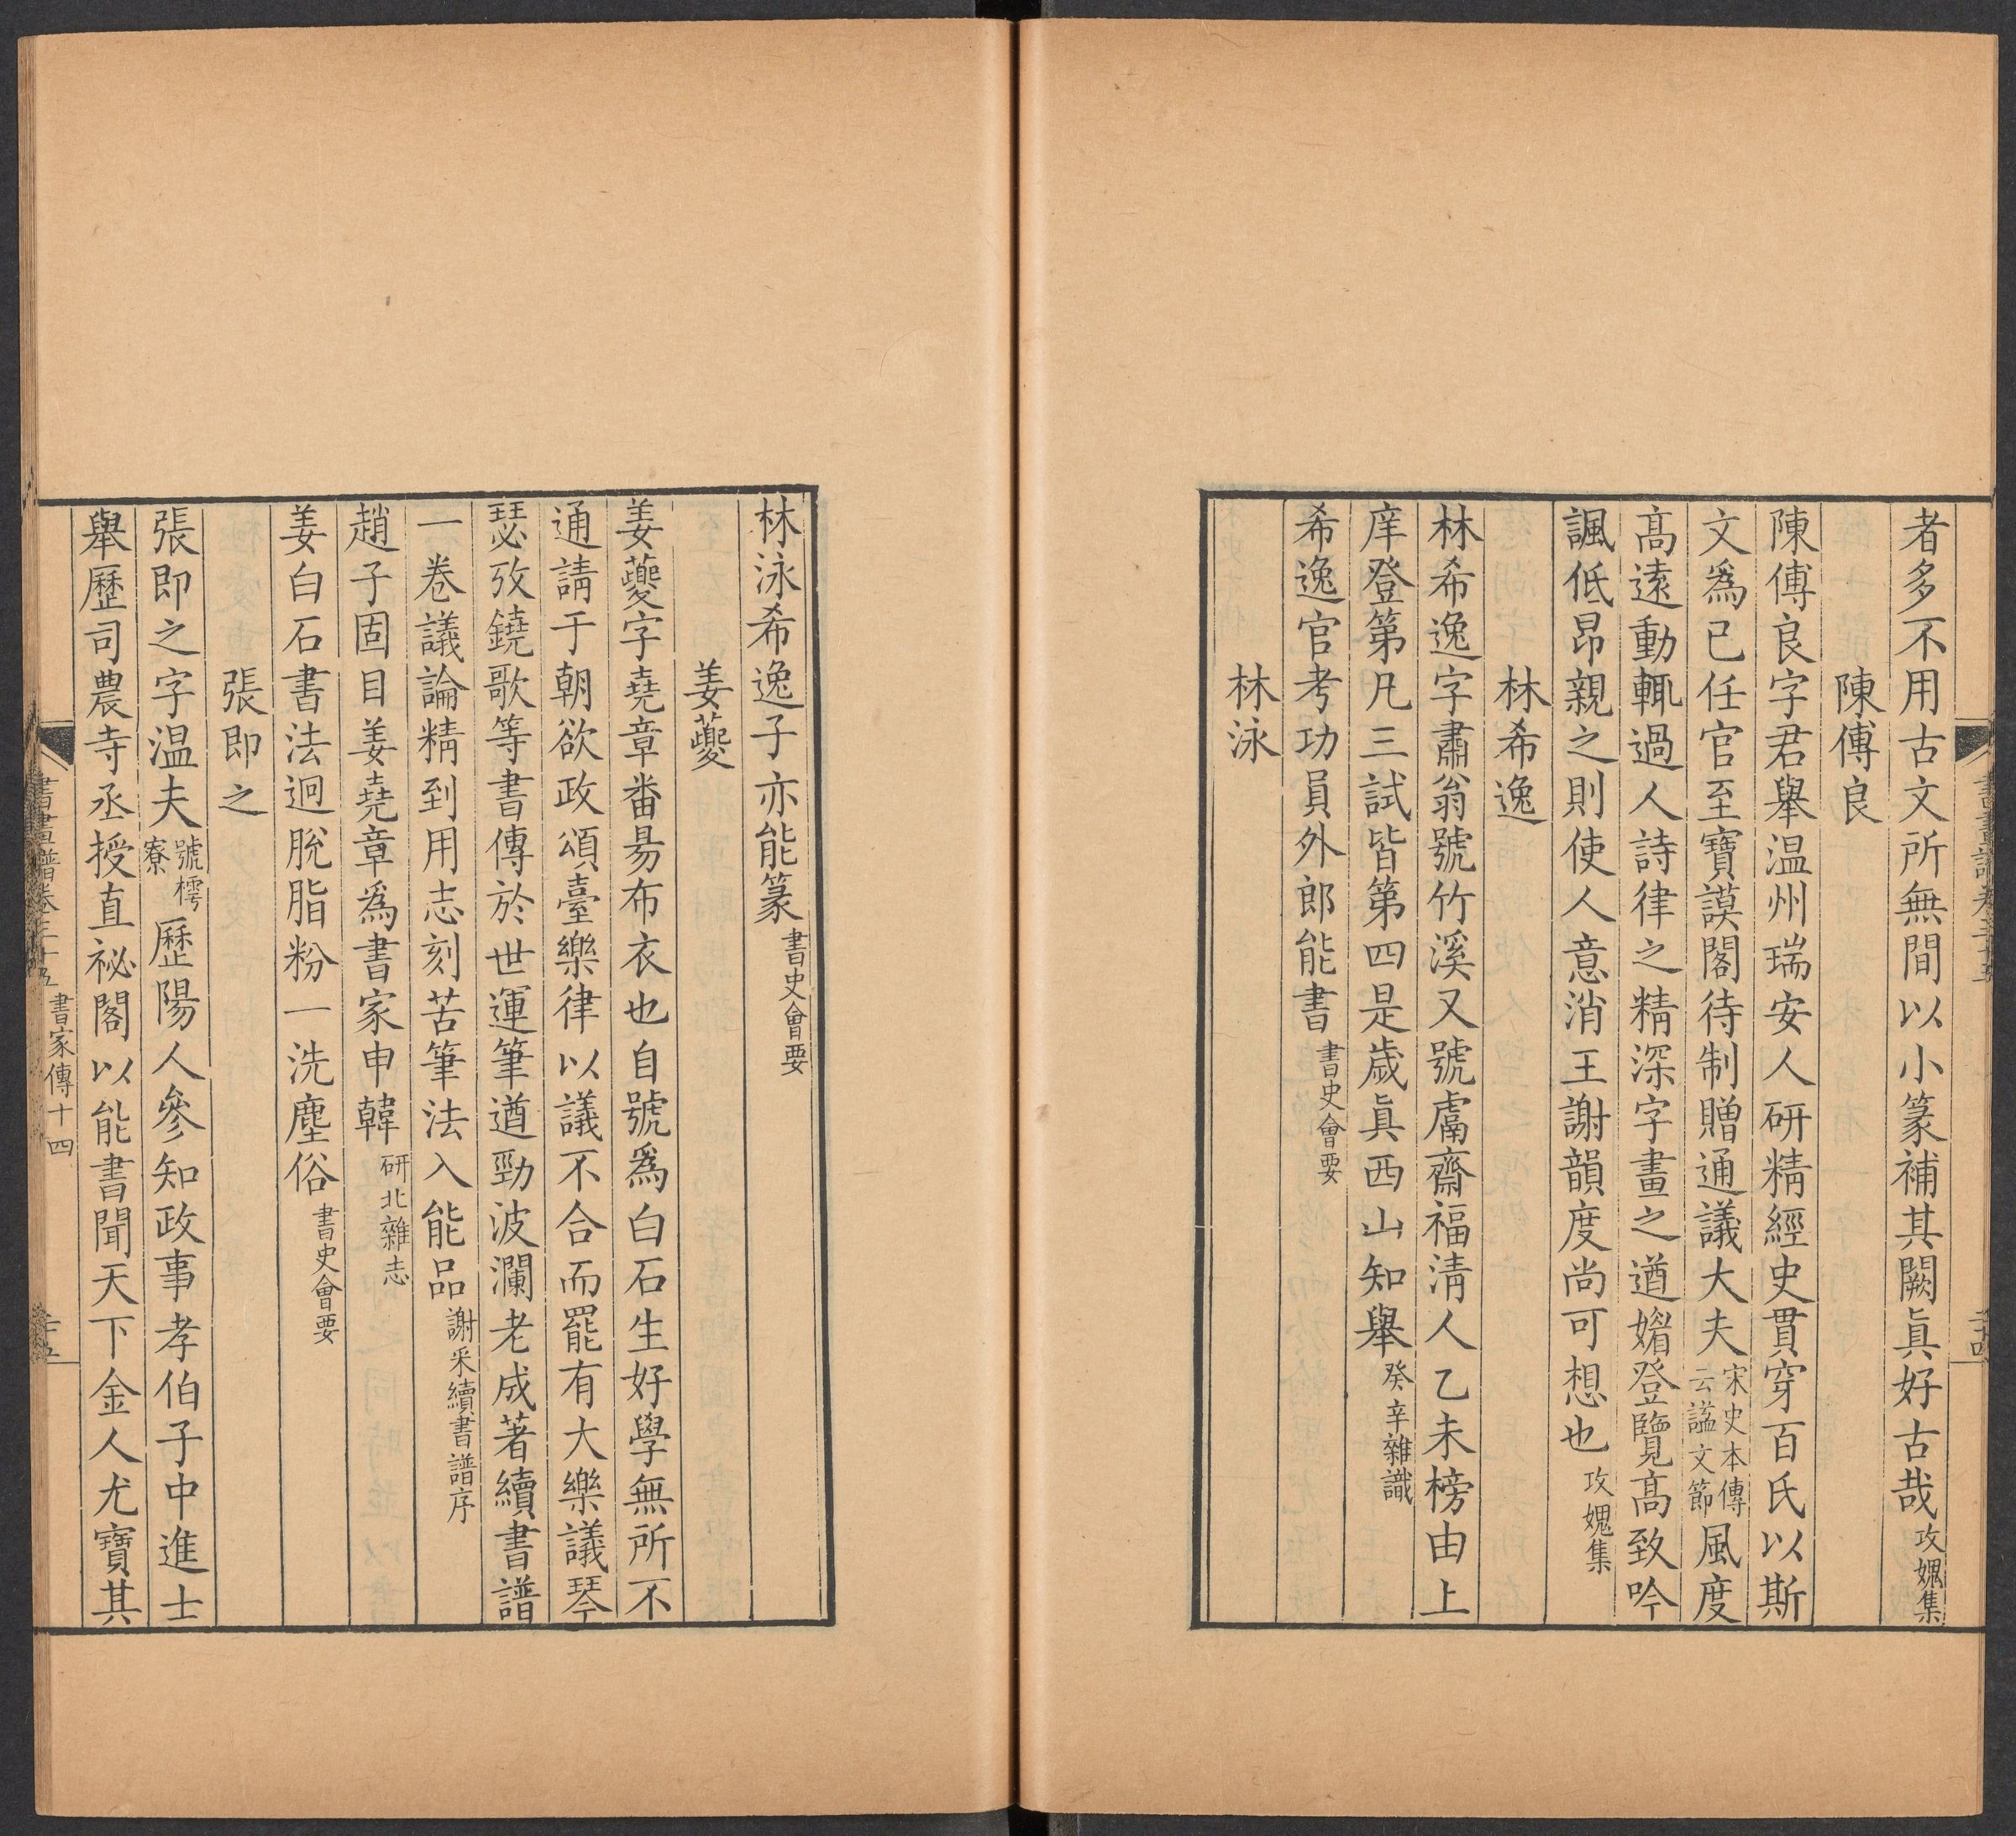 者多不用古文所無間以小篆補其闕眞好古哉攻媿集
陳傅良
陳傅良字君舉温州瑞安人研精經史貫穿百氏以斯
文爲已任官至寶謨閣待制贈通議大夫宋史本傳云諡文節風度
高遠動輒過人詩律之精深字畫之遒媚登覽高致吟
諷低昂親之則使人意消王謝韻度尚可想也攻媿集
林希逸
林希逸字肅翁號竹溪又號鬳齋福淸人乙未榜由上
庠登第凡三試皆第四是歲眞西山知舉癸辛雜識
希逸官考功員外郎能書書史會要
林泳
林泳希逸子亦能篆書史會要
姜夔
姜夔字堯章番昜布衣也自號爲白石生好學無所不
通請于朝欲政頌臺樂律以議不合而罷有大樂議琴
瑟攷鐃歌等書傳於世運筆遒勁波瀾老成著續書譜
一卷議論精到用志刻苦筆法入能品謝采續書譜序
趙子固目姜堯章爲書家申韓研北雜志
姜白石書法迥脫脂粉一洗塵俗書史會要
張即之
張即之字温夫號樗寮歷陽人參知政事孝伯子中進士
舉歷司農寺丞授直祕閣以能書聞天下金人尤寶其
書畫譜卷三十五 書家傳十四